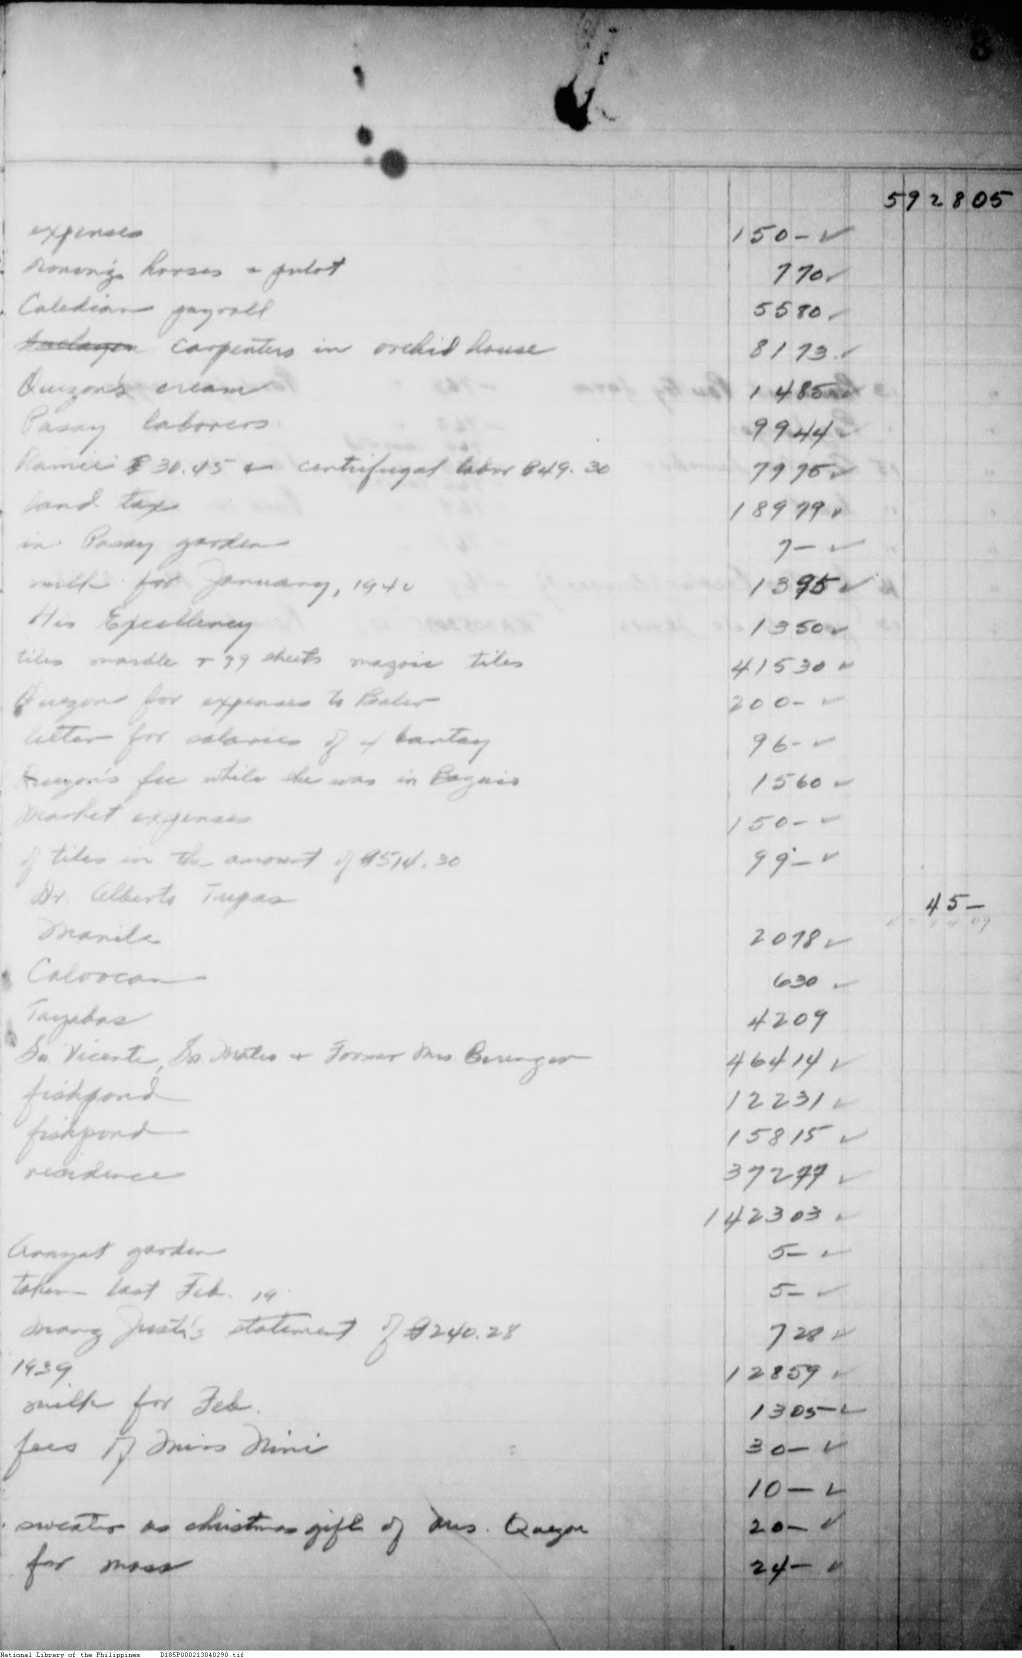 8
592805
expenses 150– ✓
horses & 770 ✓
Caledian payroll 5580 ✓
carpenters in orchid house 8173 ✓
Quezon's cream 1485 ✓
Pasay laborers 9944 ✓
Ramie ₱30.45 & centrifugal labor ₱49.30 7975 ✓
land tax 18979 ✓
in Pasay garden 7– ✓
milk for January, 1940 1395 ✓
His Excellency 1350 ✓
tiles marble & 99 sheets mazoic tiles 41530 ✓
Quezon for expenses to Baler 200– ✓
for salaries of 4 bantay 96– ✓
Quezon's fee while she was in Baguio 1560 ✓
Market expenses 150– ✓
of tiles in the amount of ₱514.30 99– ✓
Dr. Alberto Tupas 45–
Manila 2078 ✓
Caloocan 630 ✓
Tayabas 4209
Sn Vicente, Sn Mateo & Former Mrs 46414 ✓
fishpond 12231 ✓
fishpond 15815 ✓
residence 37277 ✓
142303 ✓
Arayat garden 5– ✓
taken last Feb. 19 5– ✓
Mang Justi's statement of ₱240.28 728 ✓
1939 12859 ✓
milk for Feb. 1305 ✓
fees of Miss Nini 30– ✓
10– ✓
sweater as christmas gift of Mrs. Quezon 20– ✓
for mass 24– ✓
National Library of the Philippines D185P000213040290.tif